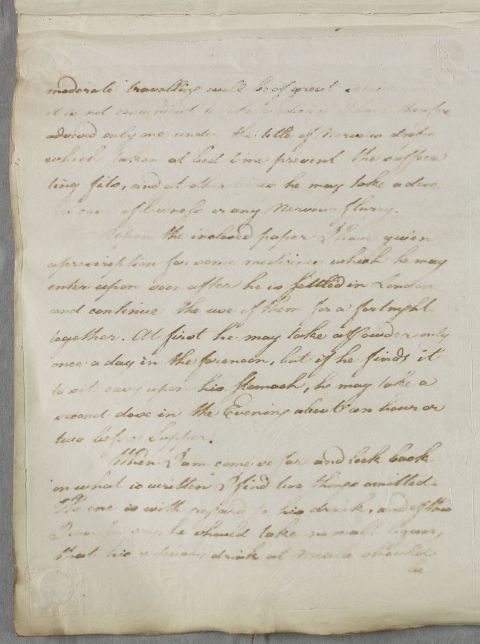 moderate travelling will be of great
it is not convenient to take medicine I have therefore
advised only one under the title of Nervous drops
which taken at bed time prevent the suffoca
ting fits, and at other times he may take a dose
in case of lowness or any Nervous flurry.
Upon the inclosed paper I have given
a prescription for some medicines which he may
enter upon soon after he is settled in London
and continue the use of them for a fortnight
together. At first he may take a Powder only
once a day in the forenoon, but if he finds it
to sit easy upon his stomach, he may take a
second dose in the Evening about an hour or
two before Supper.
When I am come so far and look back
on what is written I find two things omitted.
The one is with regard to his drink, and of this
he should take no malt liquor,
that his ordinary drink at meals should
be